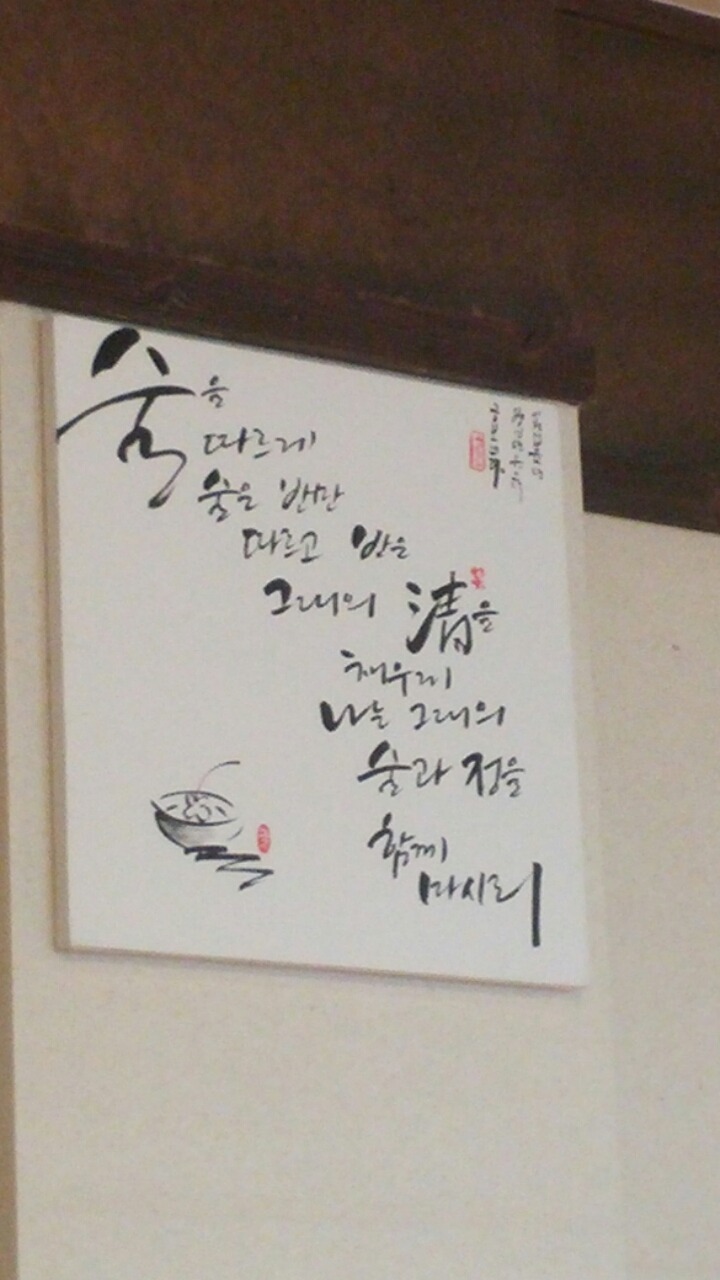 술을
따르레
술은 반만
따르고 반은
그대의 清을
채우레
나는 그대의
술과 정을
함께
마시리